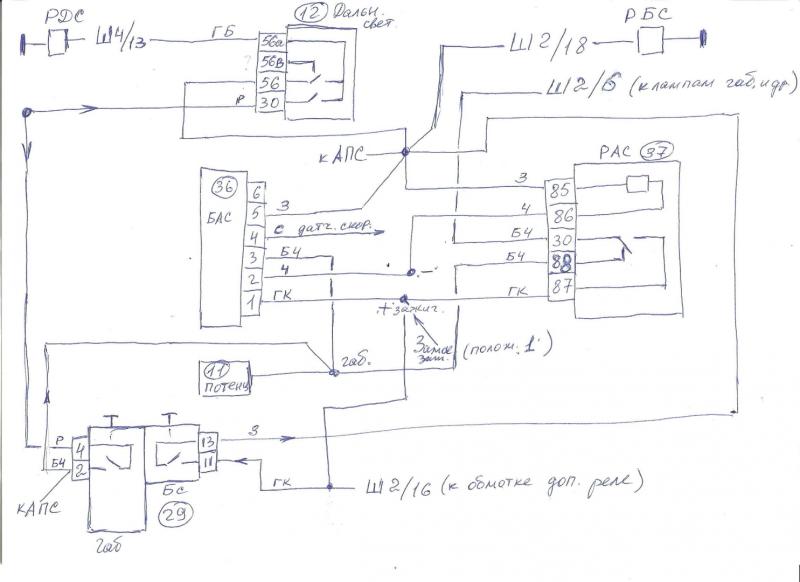 РДС
Ш4/13
ГБ
12 Дальн.
свет.
56а
56в
56
30
Р
Ш2/18
РБС
Ш2/6 (к лампам габ. и др.)
к АПС
36
БАС
6
5
4
3
2
1
З
С датч. скор.
БЧ
Ч
ГК
+ зажиг.
Замок
заж.
(полож. 1)
РАС 37
85
86
30
88
87
З
Ч
БЧ
БЧ
ГК
11
потенц
габ.
Р
БЧ
4
2
кАПС
13
11
З
ГК
БС
29
габ
Ш2/16 (к обмотке доп. реле)